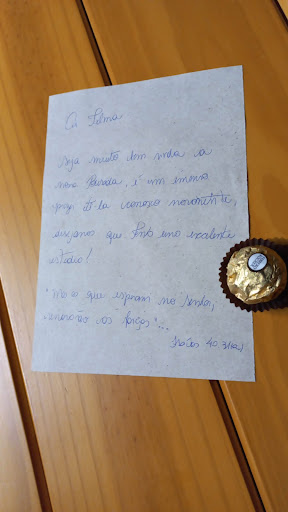 Oi Selma
Seja muito bem vinda a
nova
, é um imenso
prazer tê-la conosco novamente,
desejamos que tenha uma excelente
estadia!
"Mas os que esperam no Senhor,
renovarão as forças"...
Isaías 40:31a